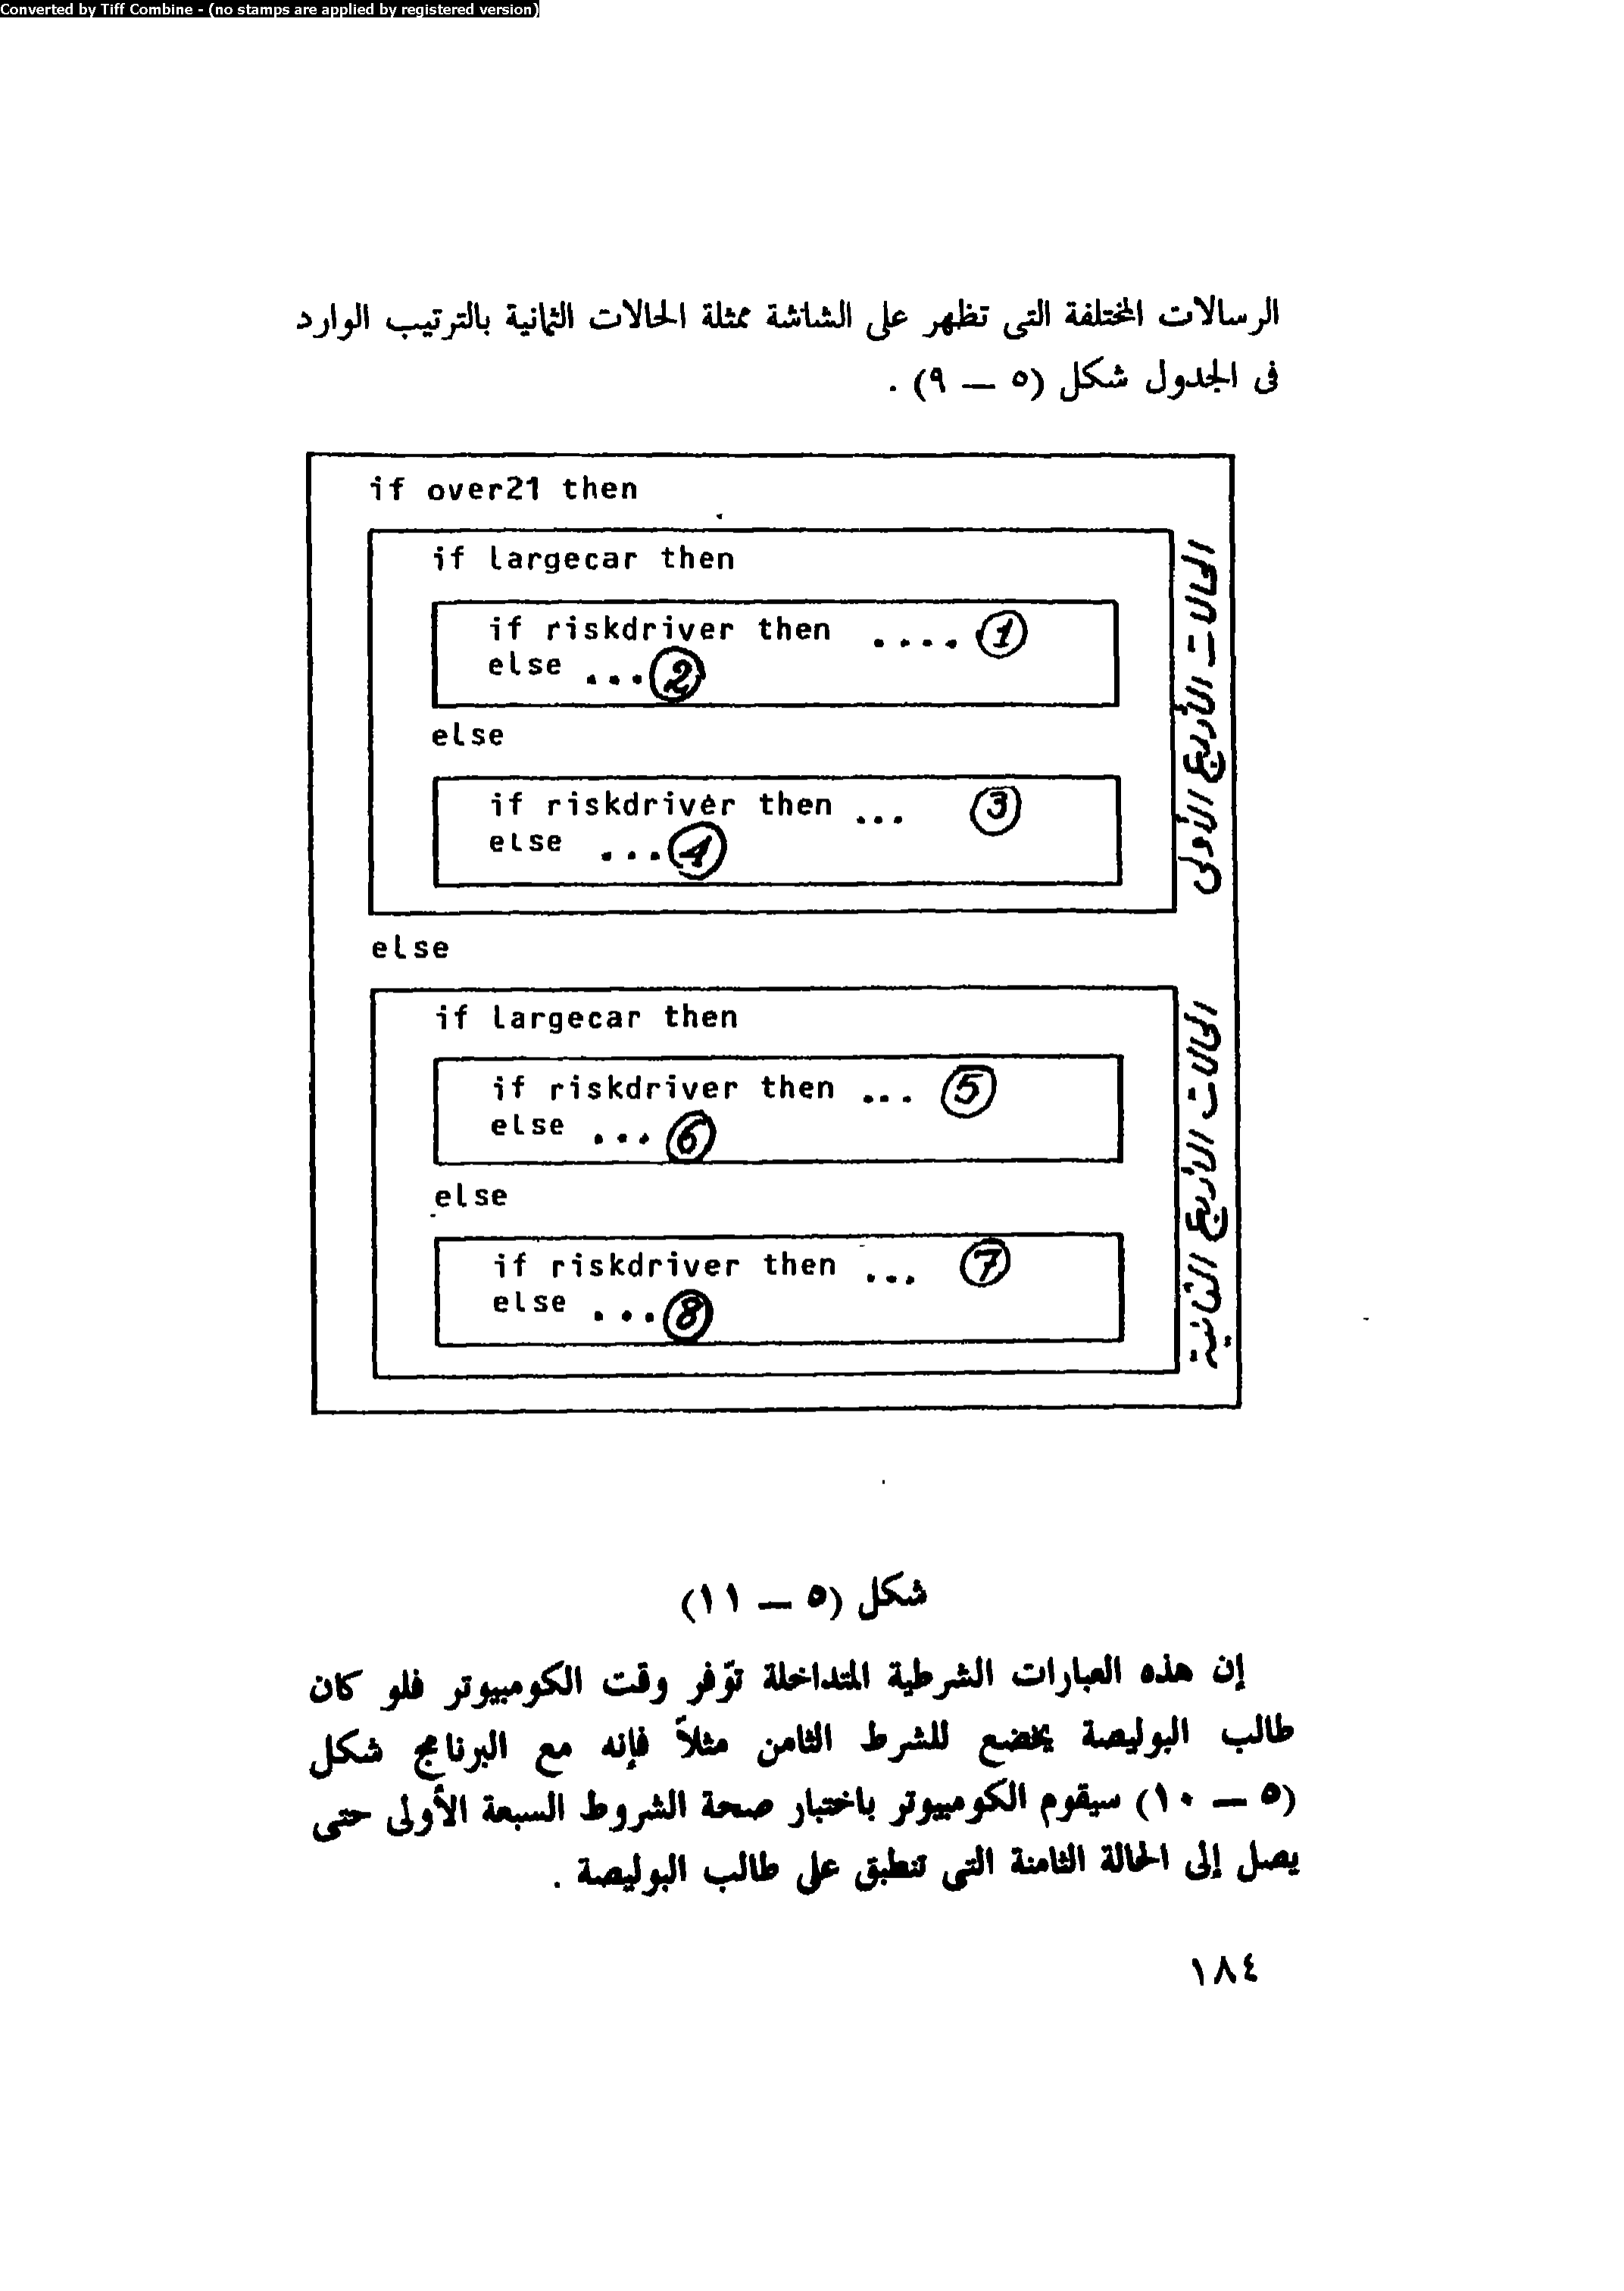 Converted by Tiff Combine - (no stamps are applied by registered version)
الرسالات المختلفة التى تظهر على الشاشة ممثلة الحالات الثمانية بالترتيب الوارد
فى الجدول شكل (٥ — ٩) .
if over21 then
if largecar then
if riskdriver then .... 1
else ... 2
else
if riskdriver then ... 3
else ... 4
الحالات الأربع الأولى
else
if largecar then
if riskdriver then ... 5
else ... 6
else
if riskdriver then ... 7
else ... 8
الحالات الأربع الثانية
شكل (٥ — ١١)
إن هذه العبارات الشرطية المتداخلة توّفر وقت الكومبيوتر فلو كان
طالب البوليصة يخضع للشرط الثامن مثلاً فإنه مع البرنامج شكل
(٥ — ١٠) سيقوم الكومبيوتر باختبار صحة الشروط السبعة الأولى حتى
يصل إلى الحالة الثامنة التى تنطبق على طالب البوليصة .
١٨٤